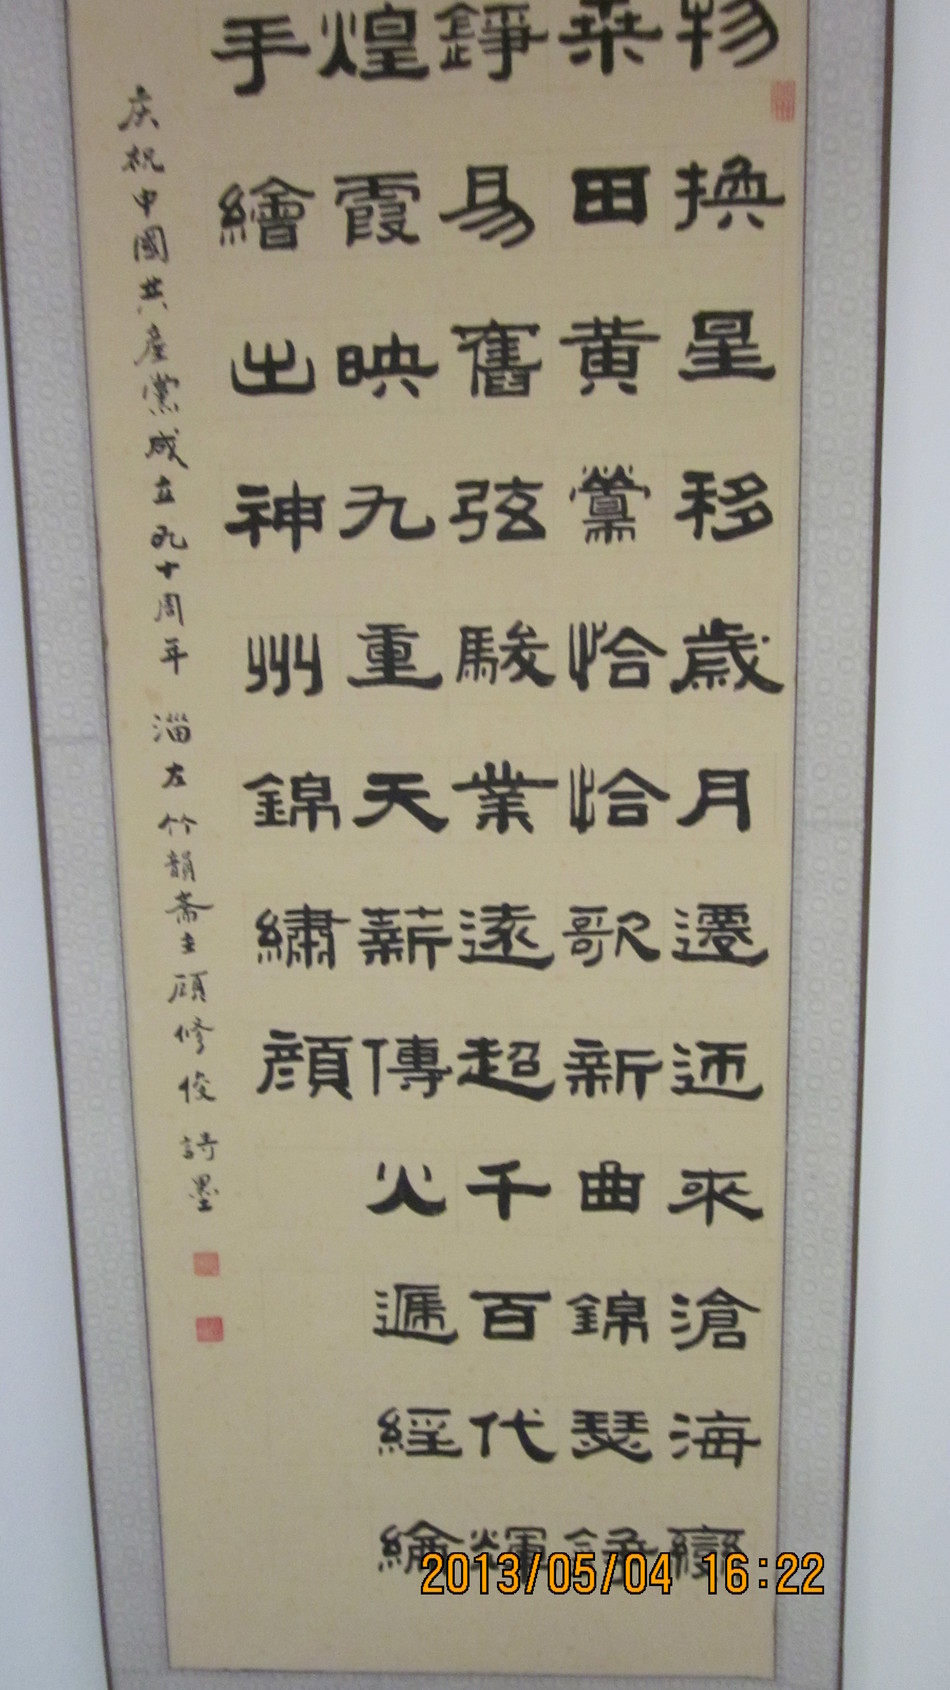 物換星移歲月遷迊來滄海變
桑田黃鶯恰恰歌新曲錦瑟錚
錚易舊弦駿業遠超千百代輝
煌霞映九重天薪傳火遞經綸
手繪出神州錦繡顏
庆祝中國共產黨成立九十周年 淄左竹韻斋主顾修俊 詩墨
2013/05/04 16:22